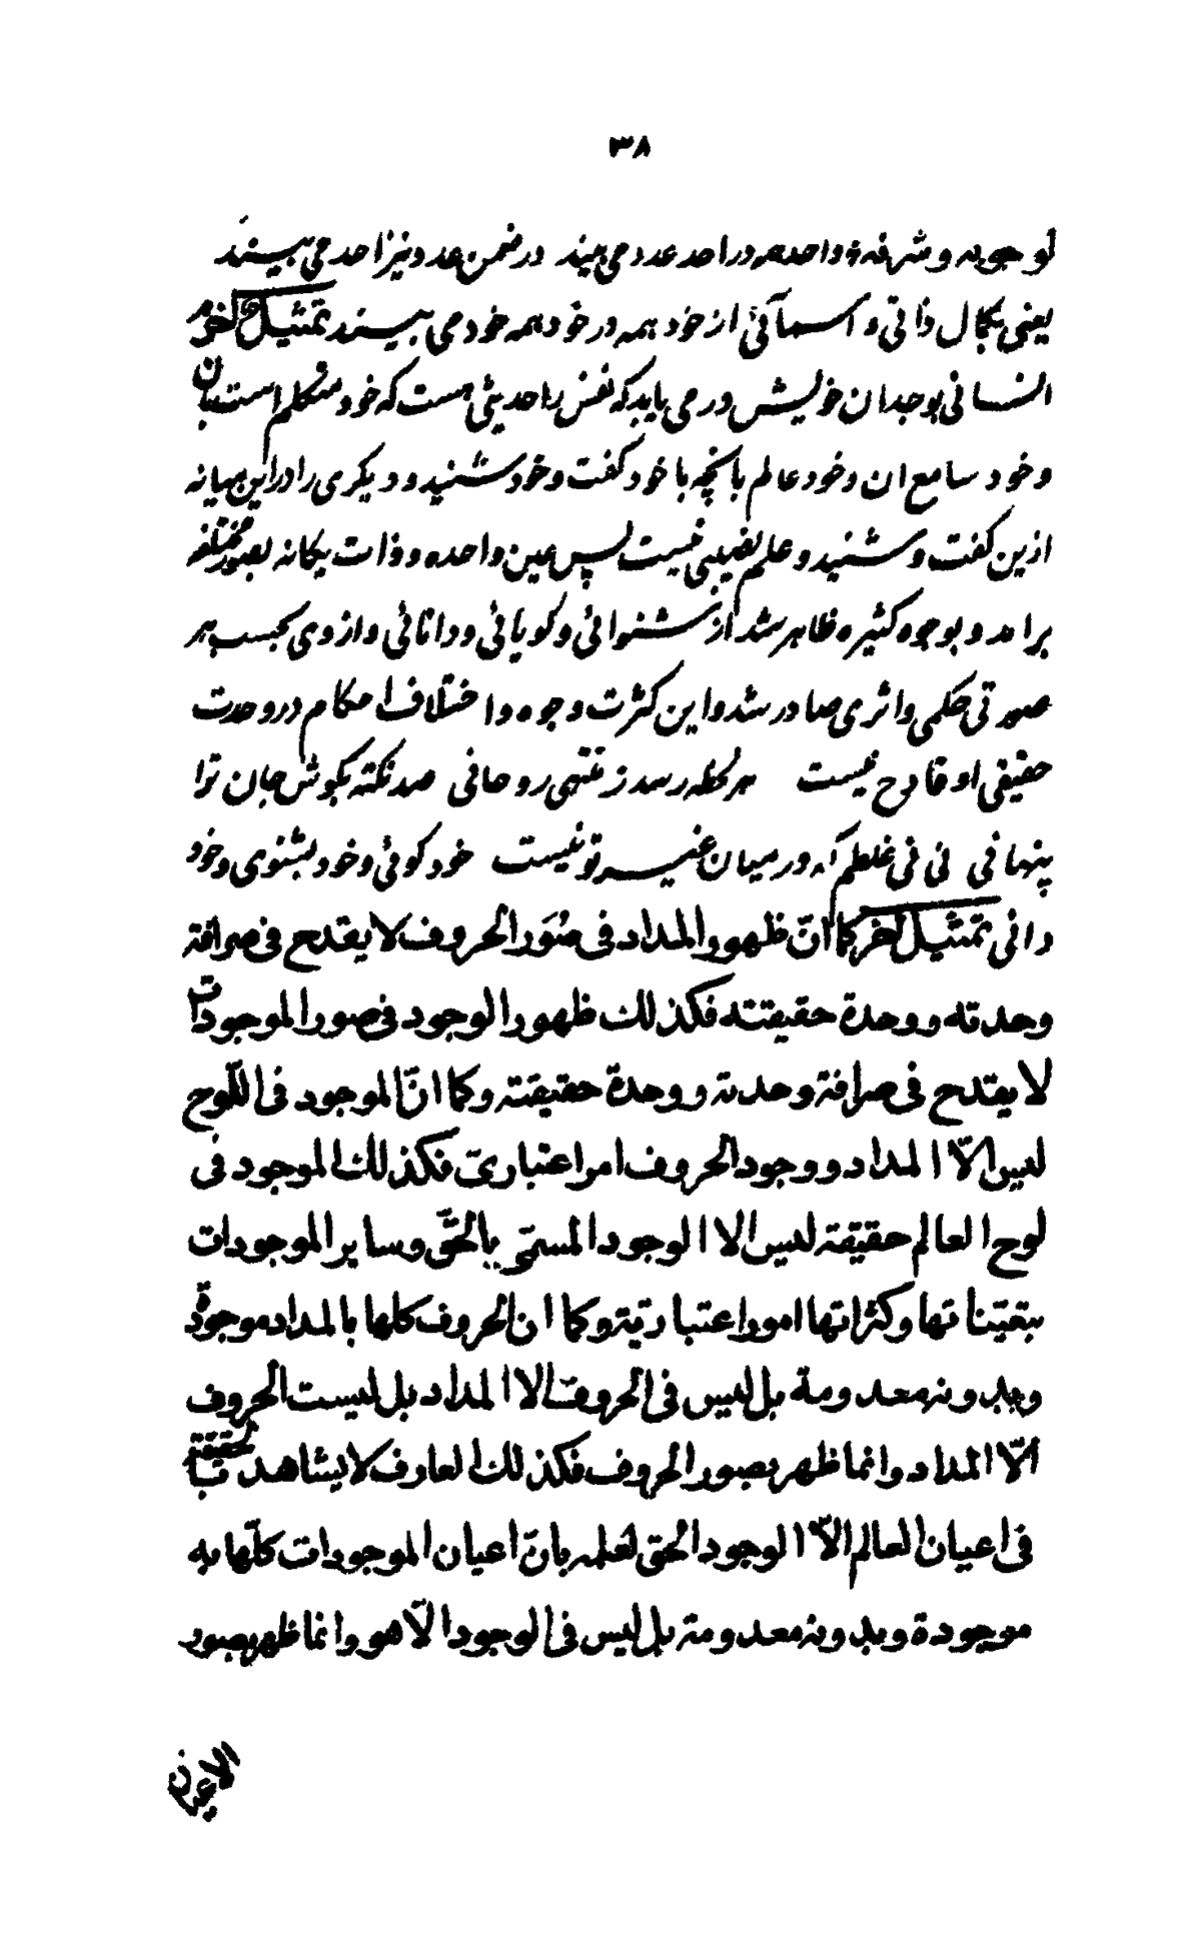 ٣٨
لوجوبه وشرفه واحد همه در احد عدد می بیند در ضمن عدد نیز احد می بیند
یعنی بکمال ذاتی و اسمآئی از خود همه در خود همه خود می بیند تمثیل آخر
انسانی بوجدان خویش در می یابد که نفس را حدیثی هست که خود متکلم است بان
و خود سامع ان و خود عالم بانچه با خود گفت و خود شنید و دیکری را در این میانه
ازین کفت و شنید و علم نصیبی نیست پس عین واحده و ذات یکانه بصور مختلفه
برامد و بوجوه کثیره ظاهر شد از شنوائی و کویائی و دانائی و از وی بحسب هر
صورتی حکمی و اثری صادر شد و این کثرت وجوه و اختلاف احکام در وحدت
حقیقی او قادح نیست هر لحظه رسد ز منهی روحانی صد نکته بکوش جان ترا
پنهانی نی نی غلطم که در میان غیر تو نیست خود کوئی و خود بشنوی و خود
دانی تمثیل آخر کما انّ ظهور المداد فی صُوَر الحروف لا یقدح فی صرافة
وحدته ووحدة حقیقته فکذلك ظهور الوجود فی صور الموجودات
لا یقدح فی صرافة وحدته ووحدة حقیقته وکما انّ الموجود فی اللّوح
لیس الاّ المداد ووجود الحروف امر اعتباریّ فکذلك الموجود فی
لوح العالم حقیقة لیس الا الوجود المسمّی بالحَقّ وسایر الموجودات
بتعیّناتها وکثراتها امور اعتباریّة وکما ان الحروف کلها بالمداد موجودة
وبدونه معدومة بل لیس فی الحروف الا المداد بل لیست الحروف
الّا المداد وانما ظهر بصور الحروف فکذلك العارف لا یشاهد بالحقیقة
فی اعیان العالم الاّ الوجود الحق لعلمه بانّ اعیان الموجودات کلّها به
موجودة وبدونه معدومة بل لیس فی الوجود الّا هو وانما ظهر بصور
الاعیان